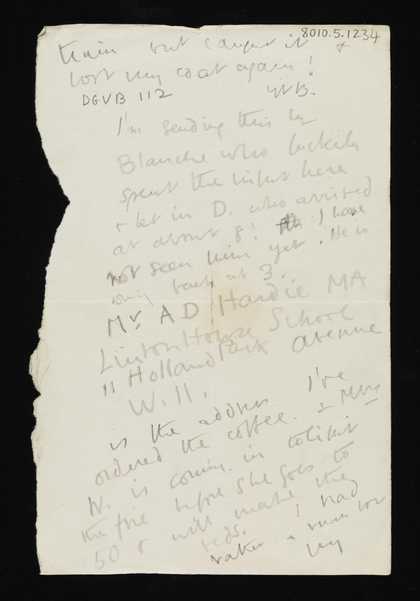 8010.5.1234
train but caught it &
lost my coat again!
DGVB 112
I'm sending this by
Blanche who luckily
spent the night here
& let in D. who arrived
at about 8! I have
not seen him yet. He is
back at 3.
Mr A D Hardie MA
Linton House School
11 Holland Park Avenue
W.11.
is the address I've
ordered the coffee. & Mrs
W. is coming in to light
the fire before she goes to
50 & will make the
beds. I had
rather a run for
my